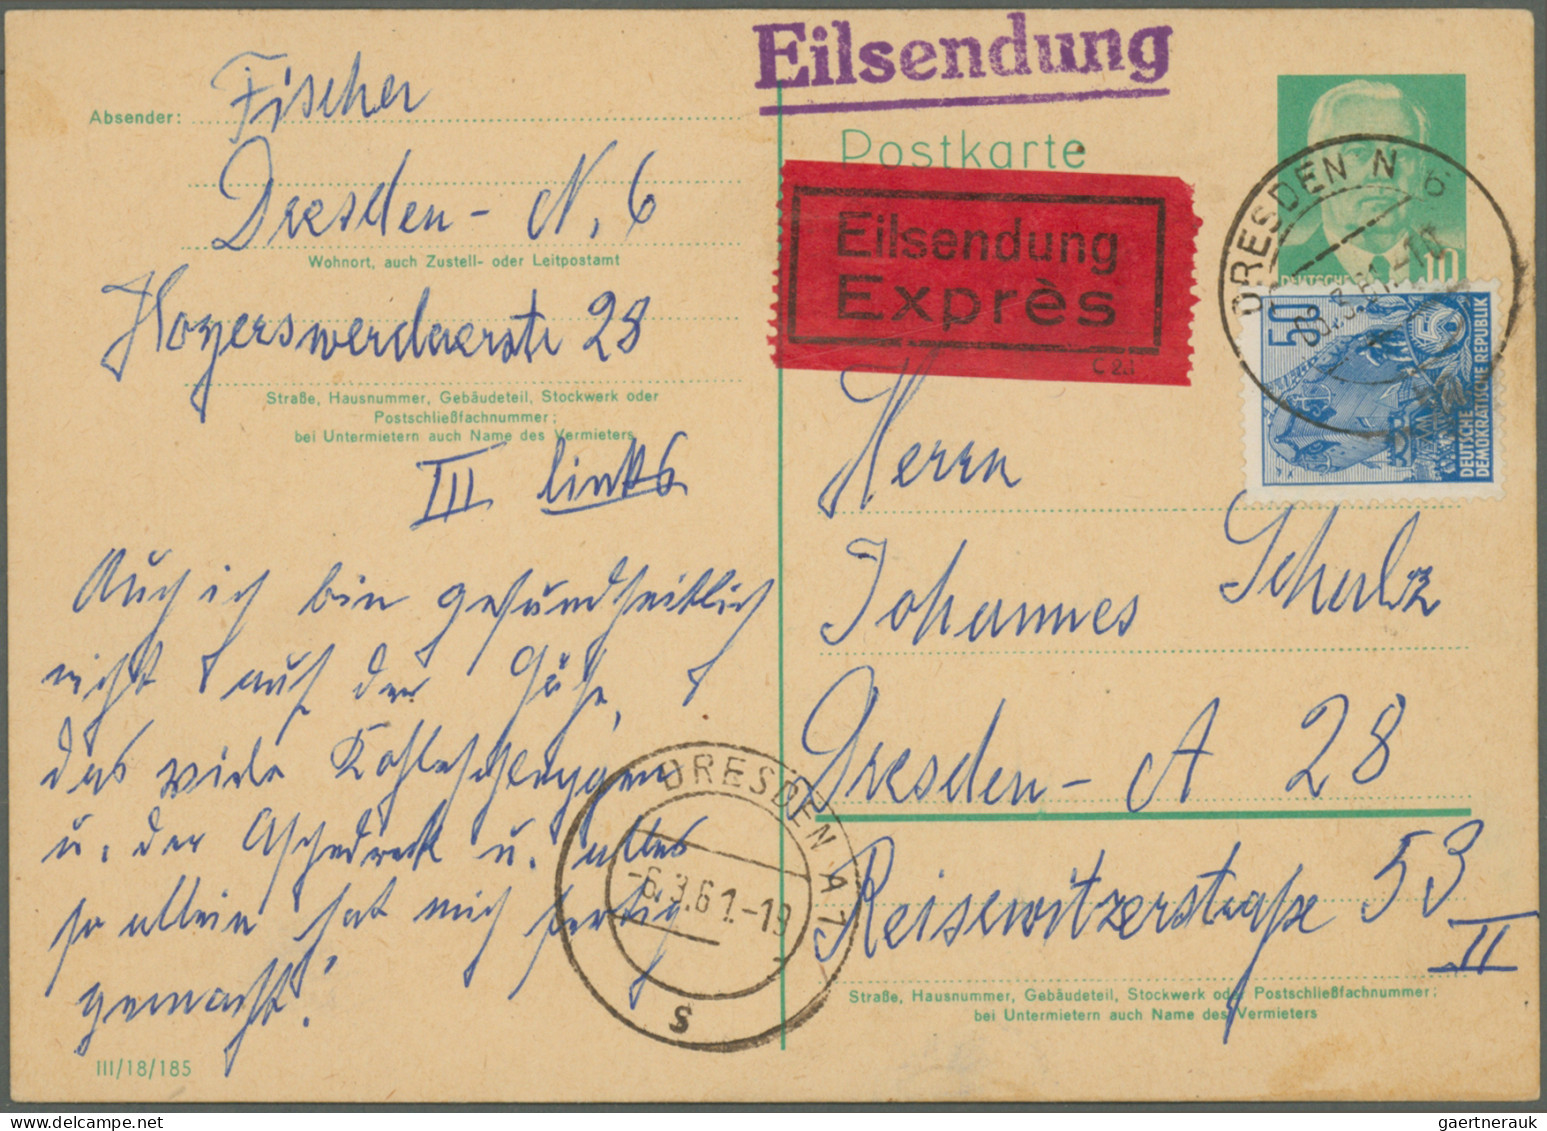 Eilsendung
Absender: Fischer
Dresden - N. 6
Wohnort, auch Zustell- oder Leitpostamt
Hoyerswerdaerstr 28
Straße, Hausnummer, Gebäudeteil, Stockwerk oder
Postschließfachnummer;
bei Untermietern auch Name des Vermieters
III links
Auch ich bin gesundheitlich
nicht auf der Höhe,
das viele Kohleschleppen
u. der Aschedreck u. alles
so allein hat mich fertig
gemacht!
III/18/185
Postkarte
Eilsendung
Exprès
C 2.1
DRESDEN N 6
.3.61.-10
DEUTSCHE
10
50
DEUTSCHE
DEMOKRATISCHE REPUBLIK
Herrn
Johannes Schulz
Dresden - A 28
Reisewitzerstraße 53
II
Straße, Hausnummer, Gebäudeteil, Stockwerk oder Postschließfachnummer;
bei Untermietern auch Name des Vermieters
DRESDEN A 7
-6.3.61.-19
s
gaertnerauk